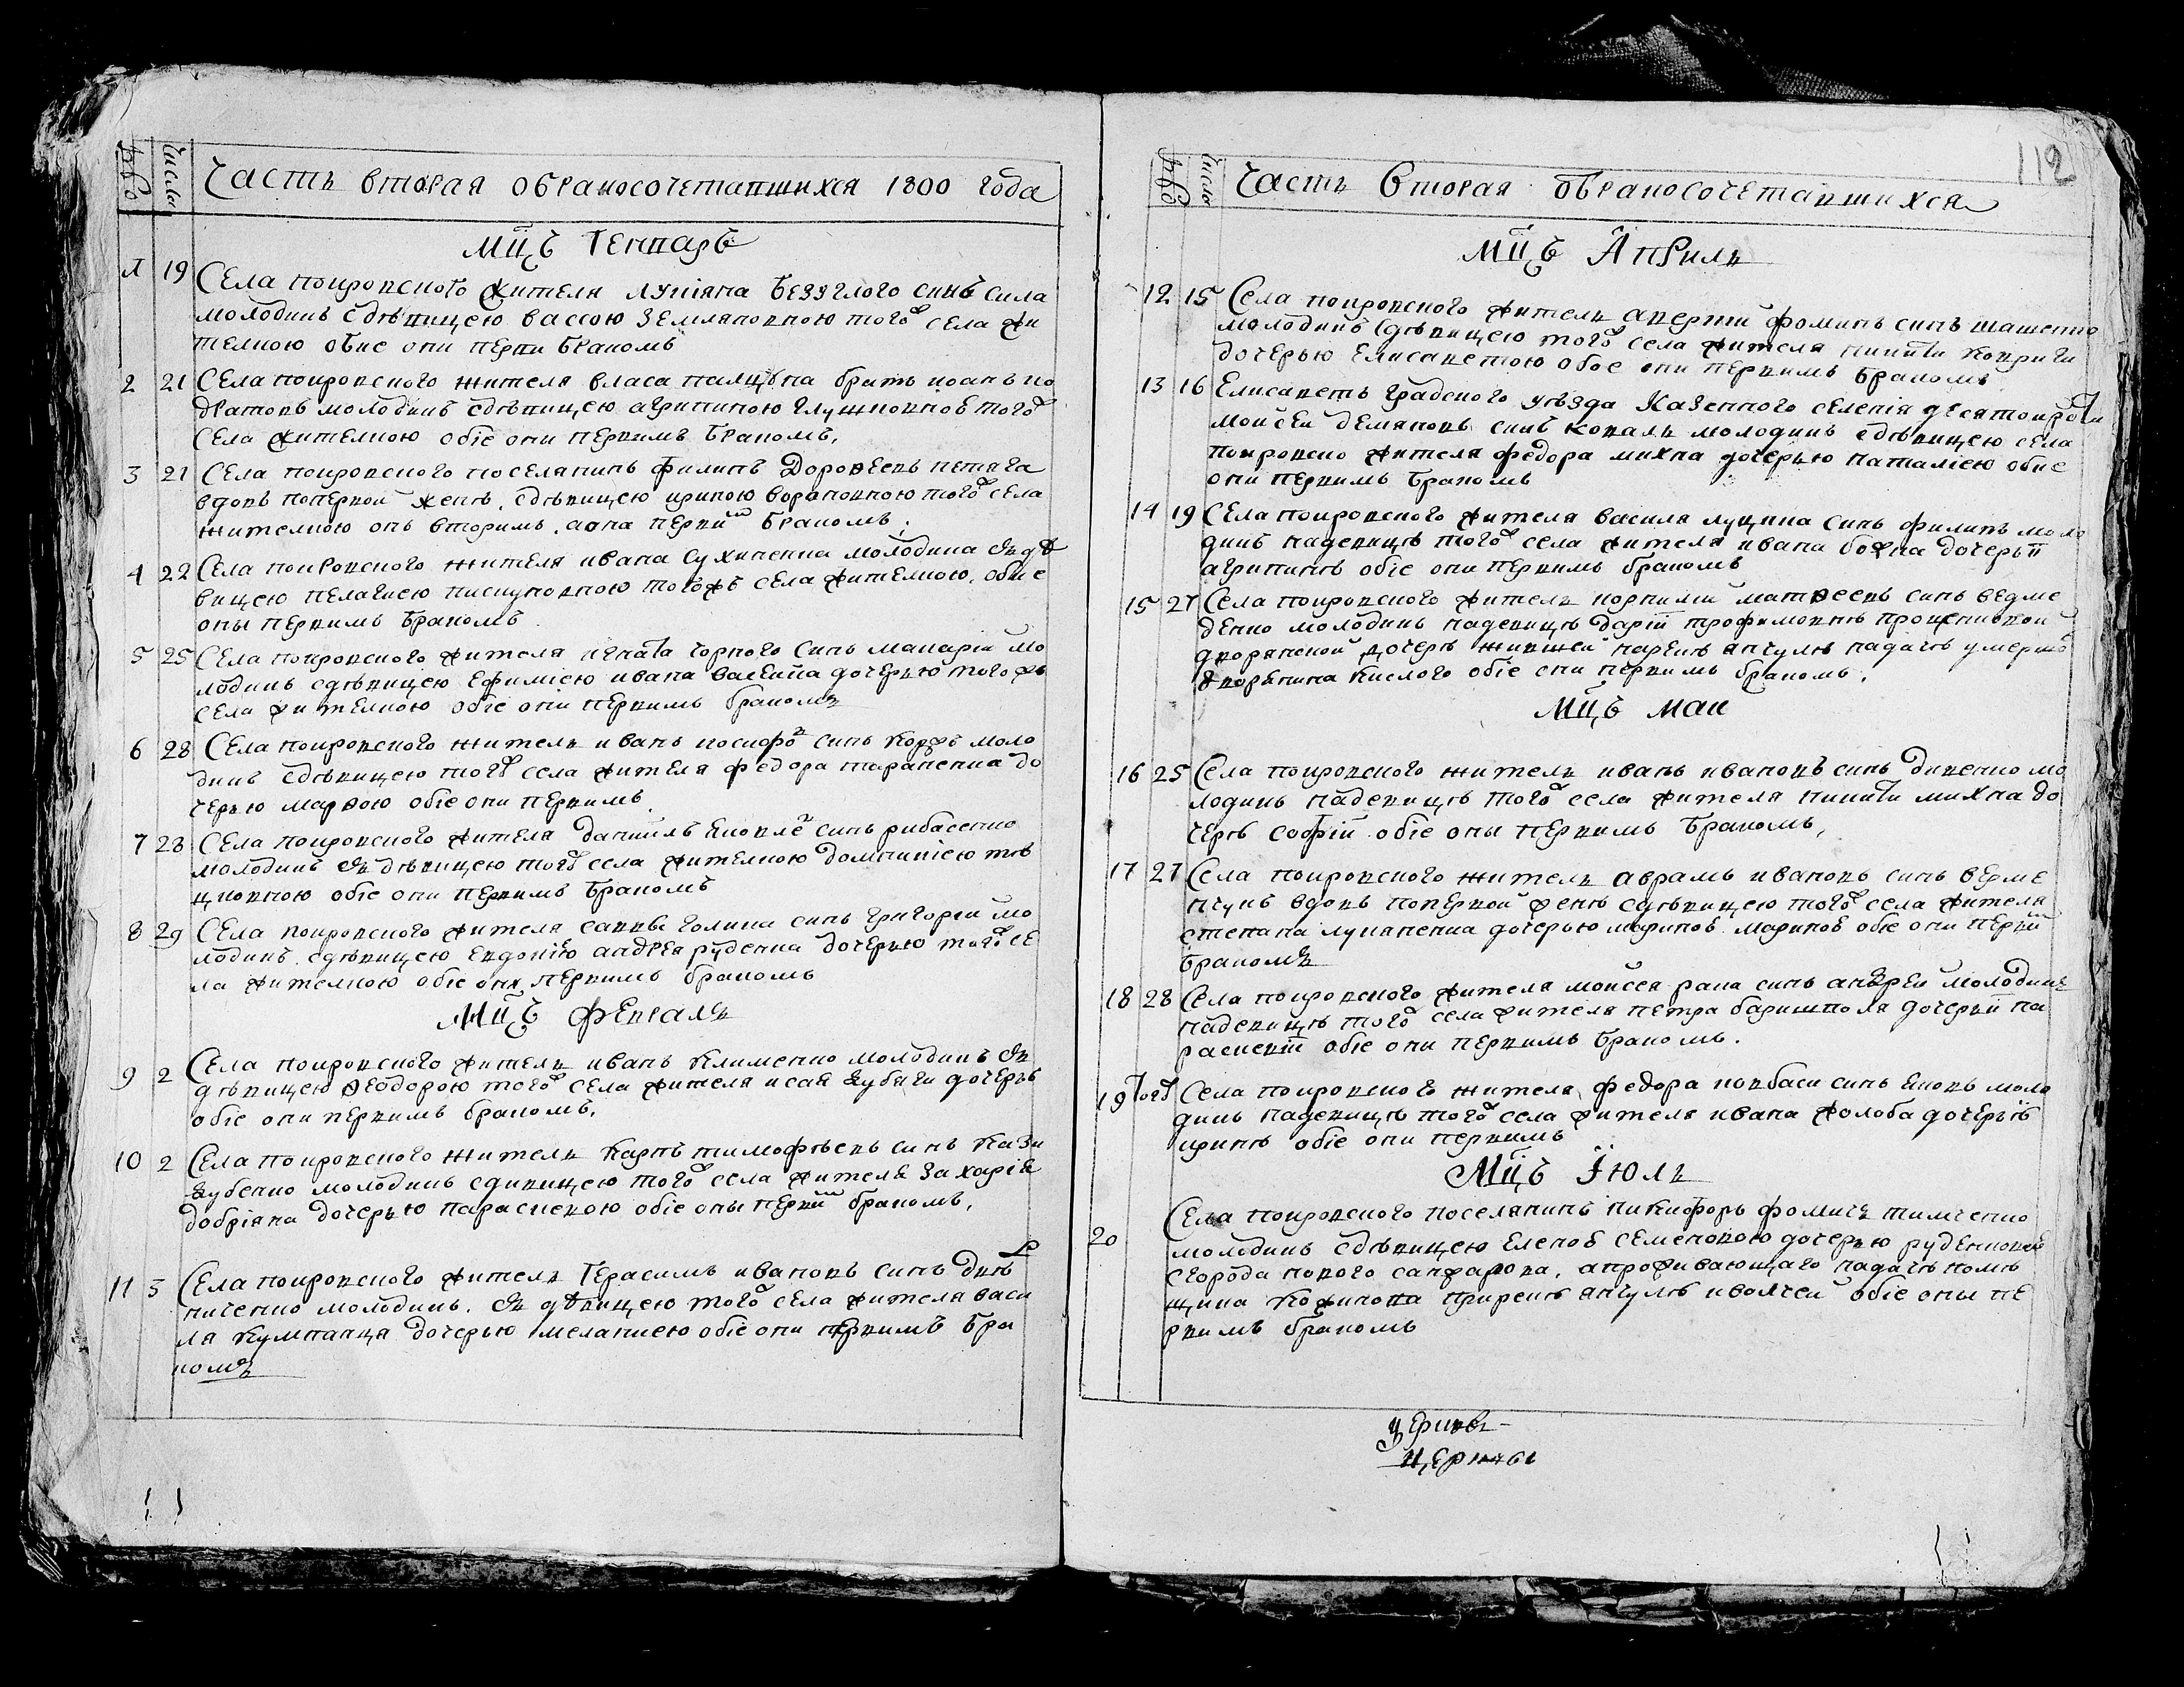 Часть вторая обракосочетавшихся 1800 года
Мцъ Генварь
1 19 Села покровского жителя лукіяна Беззуглого синъ сила
молодикъ сдѣвицею вассою Земляновною того села жи
телкою обие они перви бракомъ
2 21 Села покровского жителя власа палцѣва братъ иоанъ ко
дратовъ молодикъ сдѣвицею агрипиною глушковноѣ того
села жителкою обіе они первимъ бракомъ,
3 21 Села покровского поселянинъ филипъ Дорофеевъ петяга
вдовъ попервой женѣ, сдѣвицею ириною вороновною того села
жителкою онъ вторимъ, аона первий бракомъ,
4 22 Села покровского жителя ивана Сухиненка молодика съдѣ
вицею пелагиею пискуновною тогожъ села жителкою, обие
оны первимъ бракомъ
5 25 Села покровского жителя игната чорного синъ макарій мо
лодикъ сдѣвицею ефиміею ивана дочерью тогожъ
села жителкою обіе они первимъ бракомъ
6 28 Села покровского житель иванъ иосифо синъ коржъ моло
дикъ сдѣвицею того села жителя федора тараненка до
черью марфою обіе они первимъ
7 28 Села покровского жителя данииль яковле синъ рибасенко
молодикъ съ дѣвицею того села жителкою домникіею
цковною обіе они первимъ бракомъ
8 29 Села покровского жителя саввы голика синъ григорій мо
лодикъ, сдѣвицею евдокіею андрея руденка дочерью того се
ла жителкою обіе они первимъ бракомъ
Мцъ февраля
9 2 Села покровского житель иванъ клименко молодикъ съ
дѣвицею феодорою того села жителя исая зубаги дочерѣ
обіе они первимъ бракомъ,
10 2 Села покровского житель карпъ тимофѣевъ синъ кази
зубенко молодикъ сдивицею того села жителя захарія
добріяка дочерью параскевою обіе оны первий бракомъ,
11 5 Села покровского житель Герасимъ ивановъ синъ
ниченко молодикъ, съ дѣвицею того села жителя васи
ля кумпанця дочерью меланиею обіе они первимъ бра
комъ
112
Часть вторая обракосочетавшихся
Мцъ Априль
12 15 Села покровского житель аверкий фоминъ синъ шашенко
молодикъ сдѣвицею того села жителя никити ковриги
дочерью елисаветою обое они первимъ бракомъ
13 16 Елисаветъ градского уѣзда казенного селенія
мойсей демяновъ синъ коваль молодикъ сдѣвицею села
покровско жителя федора михна дочерью наталіею обие
они первимъ бракомъ
14 19 Села покровского жителя василя луцика синъ филипъ моло
дикъ надевицѣ того села жителя ивана божка дочерьи
агрипинѣ обіе они первимъ бракомъ
15 27 Села покровского житель корнилій матфеевъ синъ ведме
денко молодикъ надевицѣ даріи трофимовнѣ
дворянской дочерѣ жившей нарекѣ янчулѣ надачѣ умершо
дворянина кислого обіе они первимъ бракомъ,
Мцъ маи
16 25 Села покровского житель иванъ ивановъ синъ дикенко мо
лодикъ надевицѣ того села жителя никити михна до
черѣ софіи обіе оны первимъ бракомъ,
17 27 Села покровского житель аврамъ ивановъ синъ верме
нчукъ вдовъ попервой женѣ сдѣвицею того села жителя
степана лукяненка дочерью мариноѣ мариноѣ обіе они первий
бракомъ
18 28 Села покровского жителя мойсея рака синъ андрей молодикъ
надевицѣ того села жителя петра баришполя дочерьи па
раскеви обіе они первимъ бракомъ.
19 того Села покровского жителя федора ковбаси синъ яковъ моло
дикъ надевицѣ того села жителя ивана жолоба дочерьѣ
иринѣ обіе они первимъ
Мцъ Іюль
20 Села покровского поселянинъ никифоръ фомичъ тимченко
молодикъ сдѣвицею еленоѣ семеновою дочерью руденковой
сгорода нового санжарова, апроживающаго надачѣ помѣ
щика кожинова прирекѣ янчулѣ иволчей обіе оны пе
рвимъ бракомъ
церквы
церквы